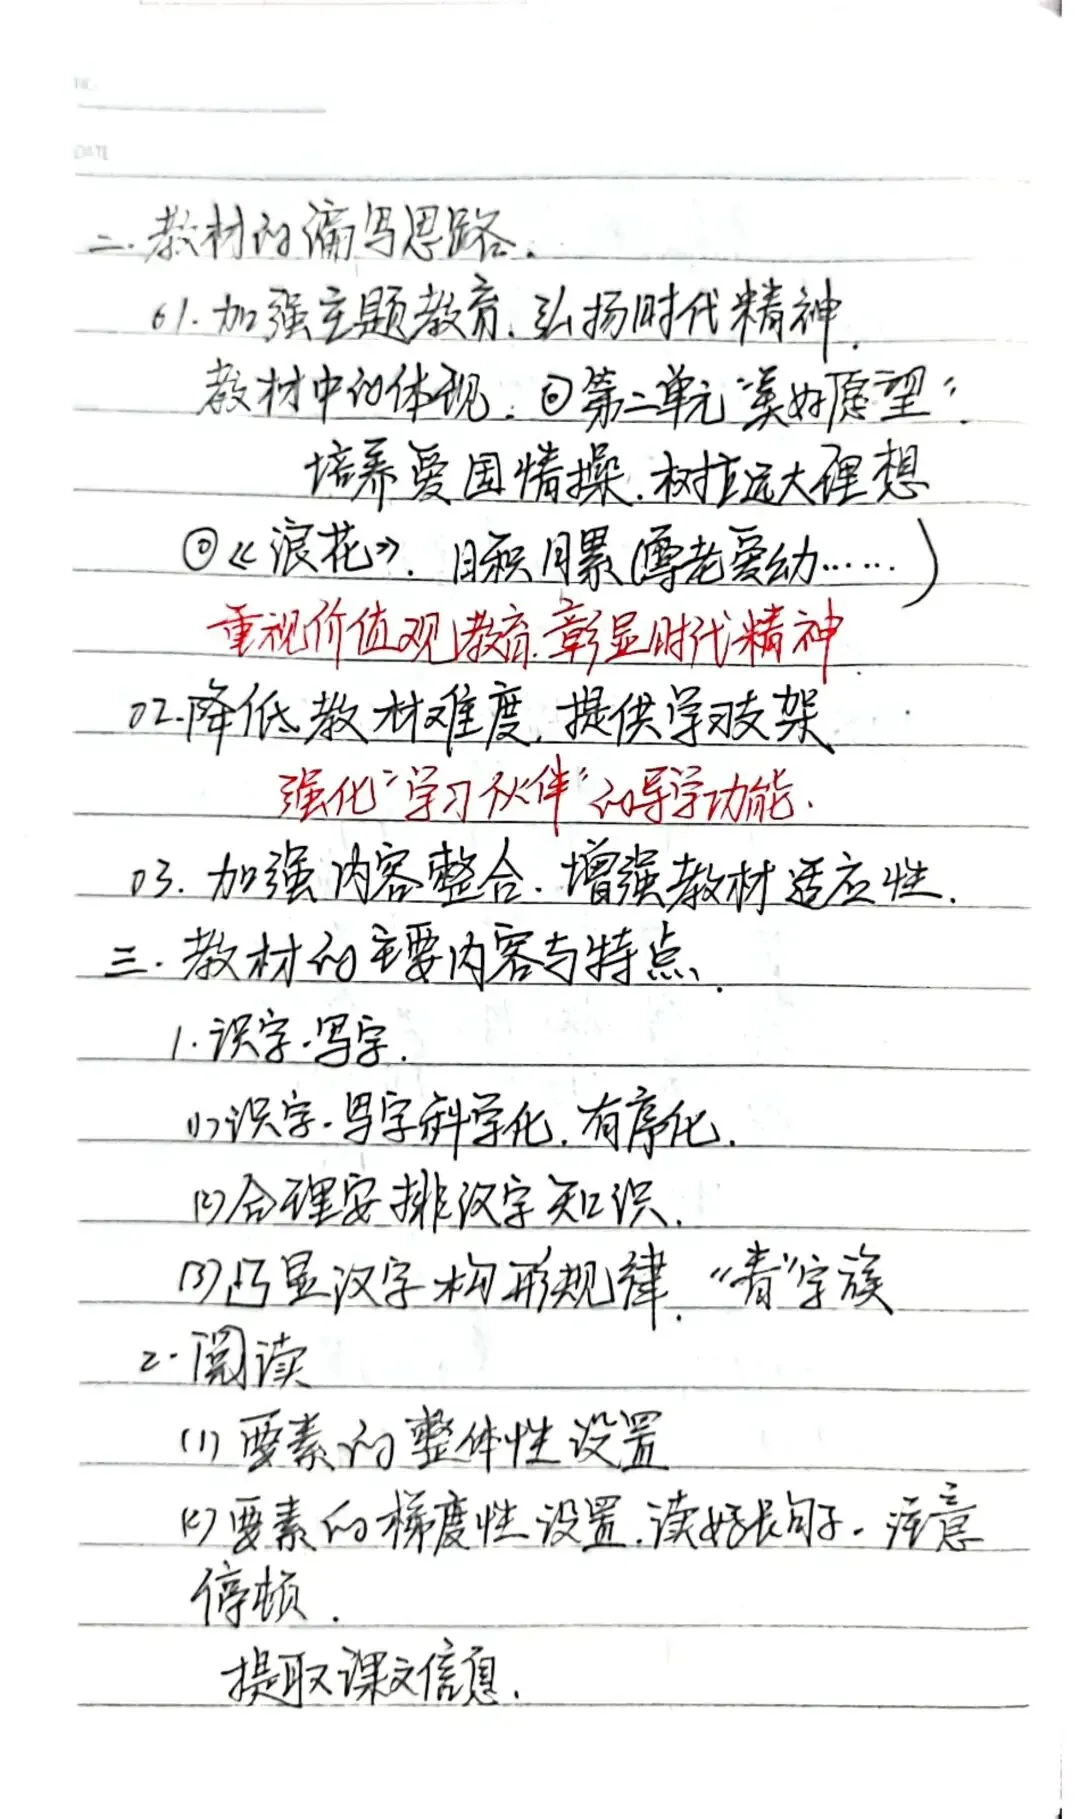 NO.
DATE
二.教材的编写思路.
01.加强主题教育.弘扬时代精神.
教材中的体现:①第二单元"美好愿望".
培养爱国情操.树立远大理想
②《浪花》.日积月累(尊老爱幼……)
重视价值观教育.彰显时代精神.
02.降低教材难度.提供学习支架
强化"学习伙伴"的导学功能.
03.加强内容整合.增强教材适应性.
三.教材的主要内容与特点.
1.识字.写字.
(1)识字.写字科学化.有序化.
(2)合理安排汉字知识.
(3)凸显汉字构形规律."青"字族
2.阅读
(1)要素的整体性设置
(2)要素的梯度性设置.读好长句子.注意
停顿.
提取课文信息.